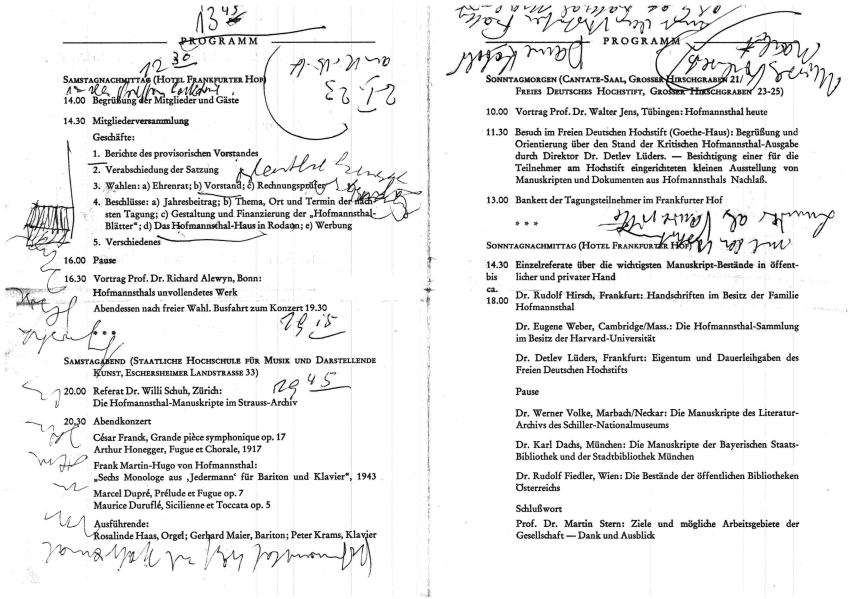 13 45
PROGRAMM
12 30
SAMSTAGNACHMITTAG (HOTEL FRANKFURTER HOF)
14.00 Begrüßung der Mitglieder und Gäste
14.30 Mitgliederversammlung
Geschäfte:
1. Berichte des provisorischen Vorstandes
2. Verabschiedung der Satzung
3. Wahlen: a) Ehrenrat; b) Vorstand; c) Rechnungsprüfer
4. Beschlüsse: a) Jahresbeitrag; b) Thema, Ort und Termin der näch-
sten Tagung; c) Gestaltung und Finanzierung der „Hofmannsthal-
Blätter“; d) Das Hofmannsthal-Haus in Rodaun; e) Werbung
5. Verschiedenes
16.00 Pause
16.30 Vortrag Prof. Dr. Richard Alewyn, Bonn:
Hofmannsthals unvollendetes Werk
Abendessen nach freier Wahl. Busfahrt zum Konzert 19.30
19 15
* * *
SAMSTAGABEND (STAATLICHE HOCHSCHULE FÜR MUSIK UND DARSTELLENDE
KUNST, ESCHERSHEIMER LANDSTRASSE 33)
19 45
20.00 Referat Dr. Willi Schuh, Zürich:
Die Hofmannsthal-Manuskripte im Strauss-Archiv
20.30 Abendkonzert
César Franck, Grande pièce symphonique op. 17
Arthur Honegger, Fugue et Chorale, 1917
Frank Martin-Hugo von Hofmannsthal:
„Sechs Monologe aus ‚Jedermann‘ für Bariton und Klavier“, 1943
Marcel Dupré, Prélude et Fugue op. 7
Maurice Duruflé, Sicilienne et Toccata op. 5
Ausführende:
Rosalinde Haas, Orgel; Gerhard Maier, Bariton; Peter Krams, Klavier
PROGRAMM
SONNTAGMORGEN (CANTATE-SAAL, GROSSER HIRSCHGRABEN 21/
FREIES DEUTSCHES HOCHSTIFT, GROSSER HIRSCHGRABEN 23-25)
10.00 Vortrag Prof. Dr. Walter Jens, Tübingen: Hofmannsthal heute
11.30 Besuch im Freien Deutschen Hochstift (Goethe-Haus): Begrüßung und
Orientierung über den Stand der Kritischen Hofmannsthal-Ausgabe
durch Direktor Dr. Detlev Lüders. — Besichtigung einer für die
Teilnehmer am Hochstift eingerichteten kleinen Ausstellung von
Manuskripten und Dokumenten aus Hofmannsthals Nachlaß.
13.00 Bankett der Tagungsteilnehmer im Frankfurter Hof
* * *
SONNTAGNACHMITTAG (HOTEL FRANKFURTER HOF)
14.30 Einzelreferate über die wichtigsten Manuskript-Bestände in öffent-
bis licher und privater Hand
ca.
18.00 Dr. Rudolf Hirsch, Frankfurt: Handschriften im Besitz der Familie
Hofmannsthal
Dr. Eugene Weber, Cambridge/Mass.: Die Hofmannsthal-Sammlung
im Besitz der Harvard-Universität
Dr. Detlev Lüders, Frankfurt: Eigentum und Dauerleihgaben des
Freien Deutschen Hochstifts
Pause
Dr. Werner Volke, Marbach/Neckar: Die Manuskripte des Literatur-
Archivs des Schiller-Nationalmuseums
Dr. Karl Dachs, München: Die Manuskripte der Bayerischen Staats-
Bibliothek und der Stadtbibliothek München
Dr. Rudolf Fiedler, Wien: Die Bestände der öffentlichen Bibliotheken
Österreichs
Schlußwort
Prof. Dr. Martin Stern: Ziele und mögliche Arbeitsgebiete der
Gesellschaft — Dank und Ausblick